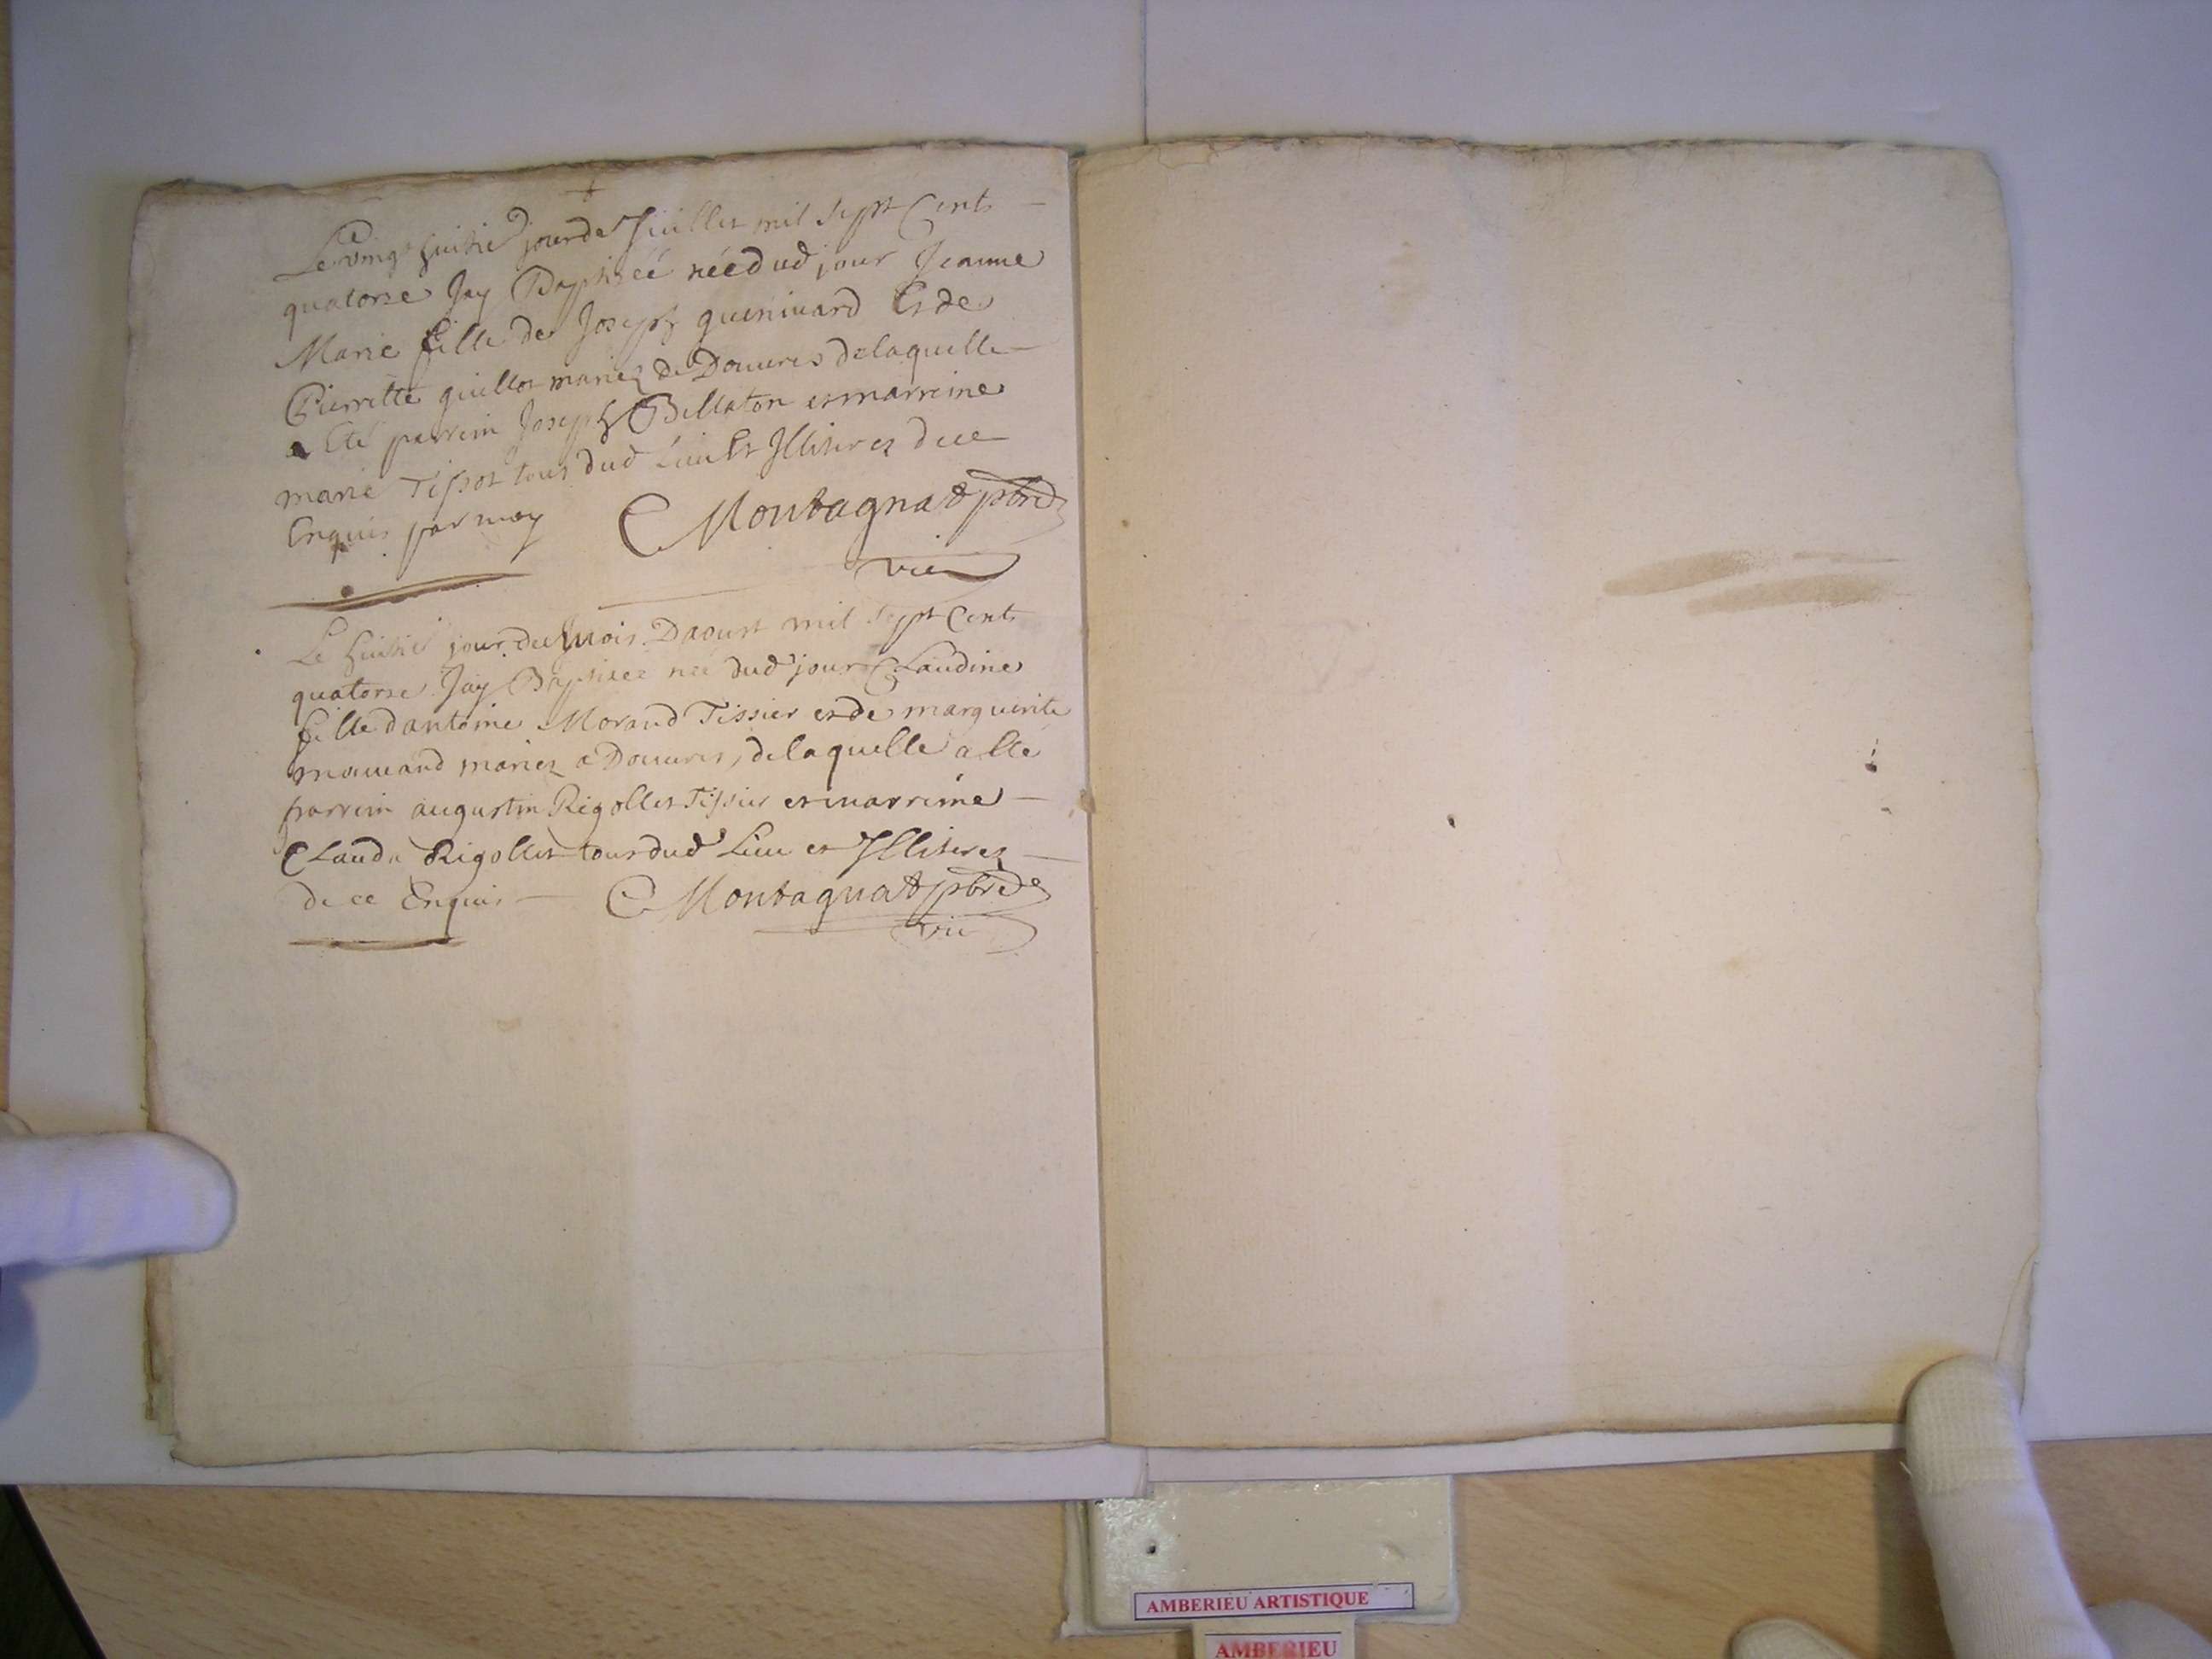 Le vingt huitie jour de Juillet mil sept Cents
quatorze Jay Baptisée née dud jour Jeanne
Marie fille de Joseph guenivard Et de
Pierrette guillot mariez de Douvres de laquelle
a Eté parrein Joseph Billaton et marreine
marie Tissot tous dud Lieu Et Illiterez de ce
Enquis par moy C Montagnat pbre
vic
Le huitie jour du mois Daoust mil sept Cents
quatorze Jay Baptisee née dud jour Claudine
fille dantoine Morand Tissier et de marguerite
mariez a Douvres, de laquelle a Eté
parrein augustin Rigollet Tissier et marreine
Clauda Rigollet tous dud Lieu et Illiterez
de ce Enquis C Montagnat pbre
vic
AMBERIEU ARTISTIQUE
AMBERIEU